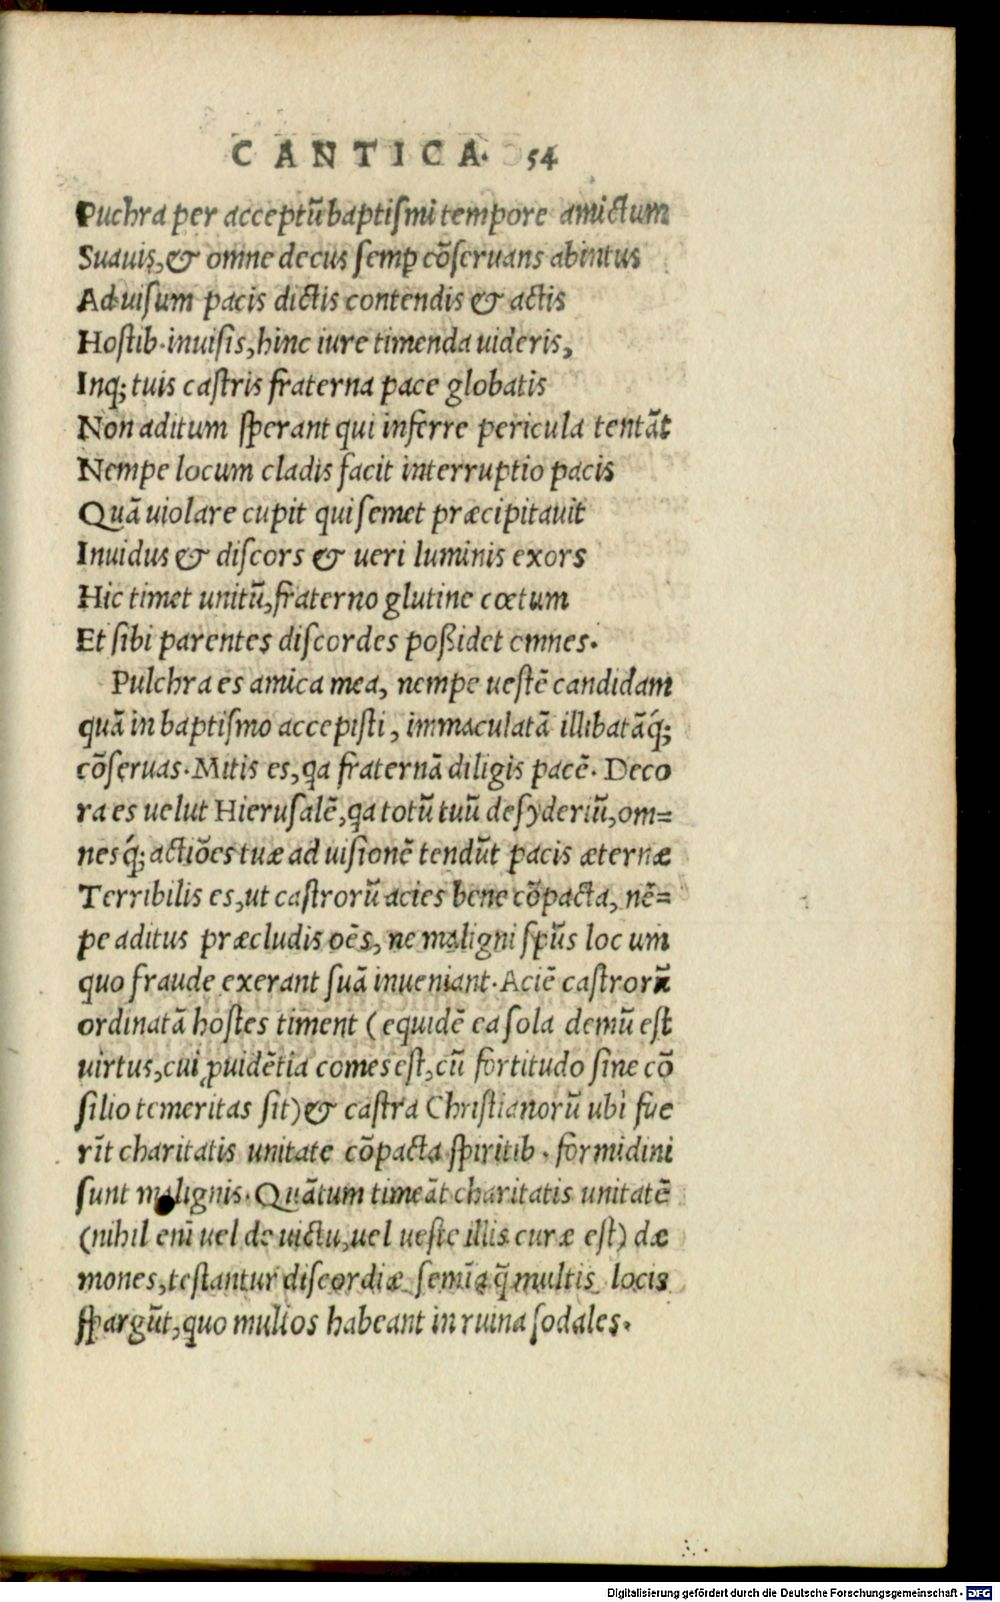 CANTICA. 54
Puchra per acceptũ baptiſmi tempore amictum
Suauis, & omne decus ſemꝑ cõſeruans abintus
Ad uiſum pacis dictis contendis & actis
Hoſtib. inuiſis, hinc iure timenda uideris,
Inq; tuis caſtris fraterna pace globatis
Non aditum ſperant qui inferre pericula tentãt
Nempe locum cladis facit interruptio pacis
Quã uiolare cupit qui ſemet præcipitauit
Inuidus & diſcors & ueri luminis exors
Hic timet unitũ, fraterno glutine cœtum
Et ſibi parentes diſcordes poßidet omnes.
Pulchra es amica mea, nempe ueſtẽ candidam
quã in baptiſmo accepiſti, immaculatã illibatãq́;
cõſeruas. Mitis es, qa fraternã diligis pacẽ. Deco
ra es uelut Hieruſalẽ, qa totũ tuũ deſyderiũ, om=
nesq́; actiões tuæ ad uiſionẽ tendũt pacis æternæ
Terribilis es, ut caſtrorũ acies bene cõpacta, nẽ=
pe aditus præcludis oẽs, ne maligni ſpũs locum
quo fraude exerant ſuã inueniant. Aciẽ caſtrorũ
ordinatã hoſtes timent (equidẽ ea ſola demũ eſt
uirtus, cui ꝓuidẽtia comes eſt, cũ fortitudo ſine cõ
ſilio temeritas ſit) & caſtra Chriſtianorũ ubi fue
rĩt charitatis unitate cõpacta ſpiritib. formidini
ſunt malignis. Quãtum timeãt charitatis unitatẽ
(nihil enĩ uel de uictu, uel ueſte illis curæ eſt) dæ
mones, teſtantur diſcordiæ ſemĩa q̃ multis locis
ſpargũt, quo multos habeant in ruina ſodales.
Digitalisierung gefördert durch die Deutsche Forschungsgemeinschaft - DFG